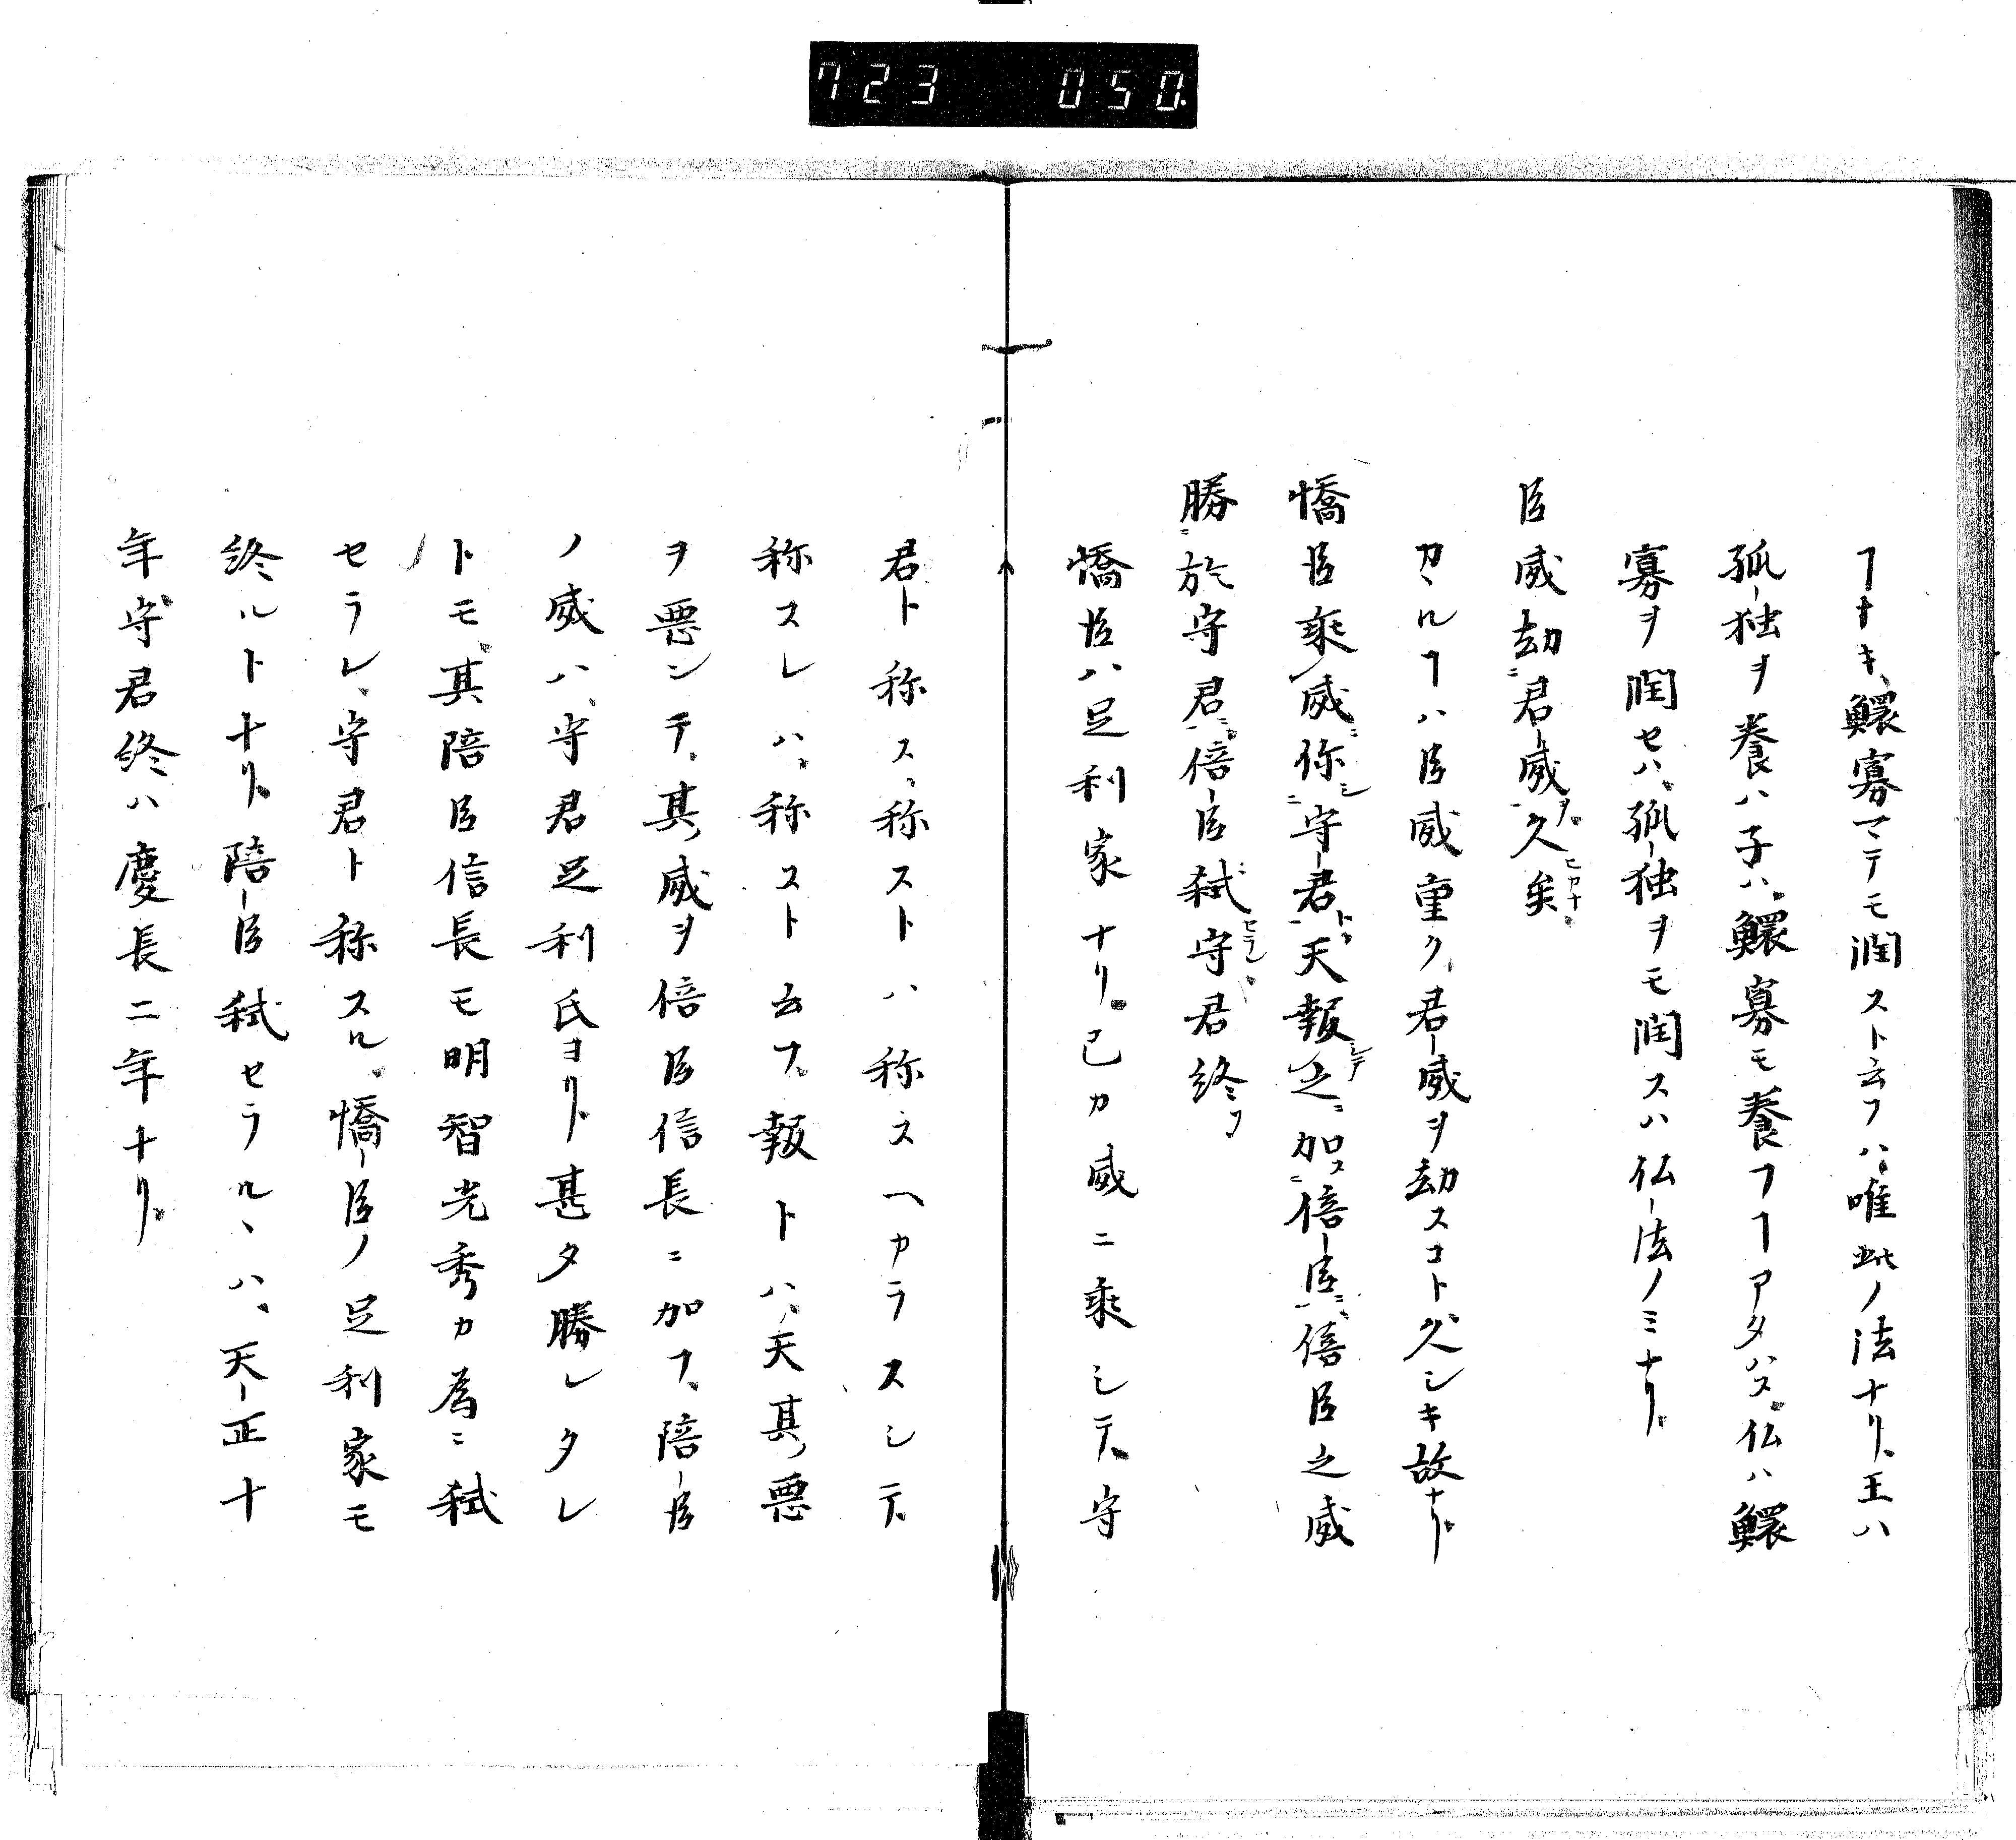 723 050.
ヿナキ、鰥寡マテモ潤スト云フハ、唯此ノ法ナリ、王ハ
孤独ヲ養ハ子ハ、鰥寡モ養フヿアタハス、仏ハ鰥
寡ヲ潤セハ、孤独ヲモ潤スハ仏法ノミナリ、
臣威劫ニ君威ヲ久矣ヒカナ
カヽルヿハ臣威重ク、君威ヲ劫スコト久シキ故ナリ、
憍臣乗威ニ称シ守君ト、天報シテ之ニ加フ倍臣ニ、倍臣之威
勝ニ於守君ニ、倍臣弑セラレ、守君終フ
憍臣ハ足利家ナリ、己カ威ニ乗シテ、守
君ト称ス、称ストハ称スヘカラスシテ、
称スレハ、称スト云フ、報トハ、天其悪
ヲ悪ンテ、其威ヲ倍臣信長ニ加フ、陪臣
ノ威ハ、守君足利氏ヨリ甚タ勝レタレ
トモ、其陪臣信長モ明智光秀カ為ニ弑
セラレ、守君ト称スル、憍臣ノ足利家モ
終ルトナリ、陪臣弑セラルヽハ、天正十
年、守君終ハ慶長二年ナリ、